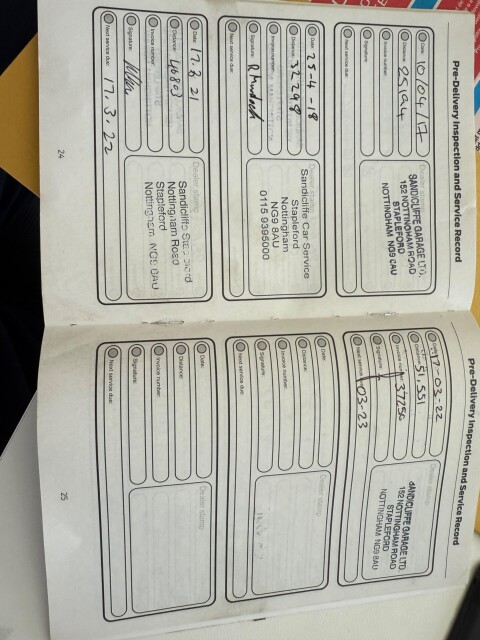 Pre-Delivery Inspection and Service Record
Date: 10/04/17
Distance: 25194
Invoice number:
Signature:
Next service due:
Dealer stamp
SANDICLIFFE GARAGE LTD.
152 NOTTINGHAM ROAD
STAPLEFORD
NOTTINGHAM NG9 8AU
Date: 25-4-18
Distance: 32298
Invoice number:
Signature: R Murdoch
Next service due:
Dealer stamp
Sandicliffe Car Service
Stapleford
Nottingham
NG9 8AU
0115 9395000
Date: 17.3.21
Distance: 46803
Invoice number:
Signature:
Next service due: 17.3.22
Dealer stamp
Sandicliffe Stapleford
Nottingham Road
Stapleford
Nottingham NG9 8AU
24
Pre-Delivery Inspection and Service Record
17-03-22
51,551
37250
Next service 03-23
Dealer stamp
SANDICLIFFE GARAGE LTD.
152 NOTTINGHAM ROAD
STAPLEFORD
NOTTINGHAM NG9 8AU
Date:
Distance:
Invoice number:
Signature:
Next service due:
Dealer stamp
Date:
Distance:
Invoice number:
Signature:
Next service due:
Dealer stamp
25